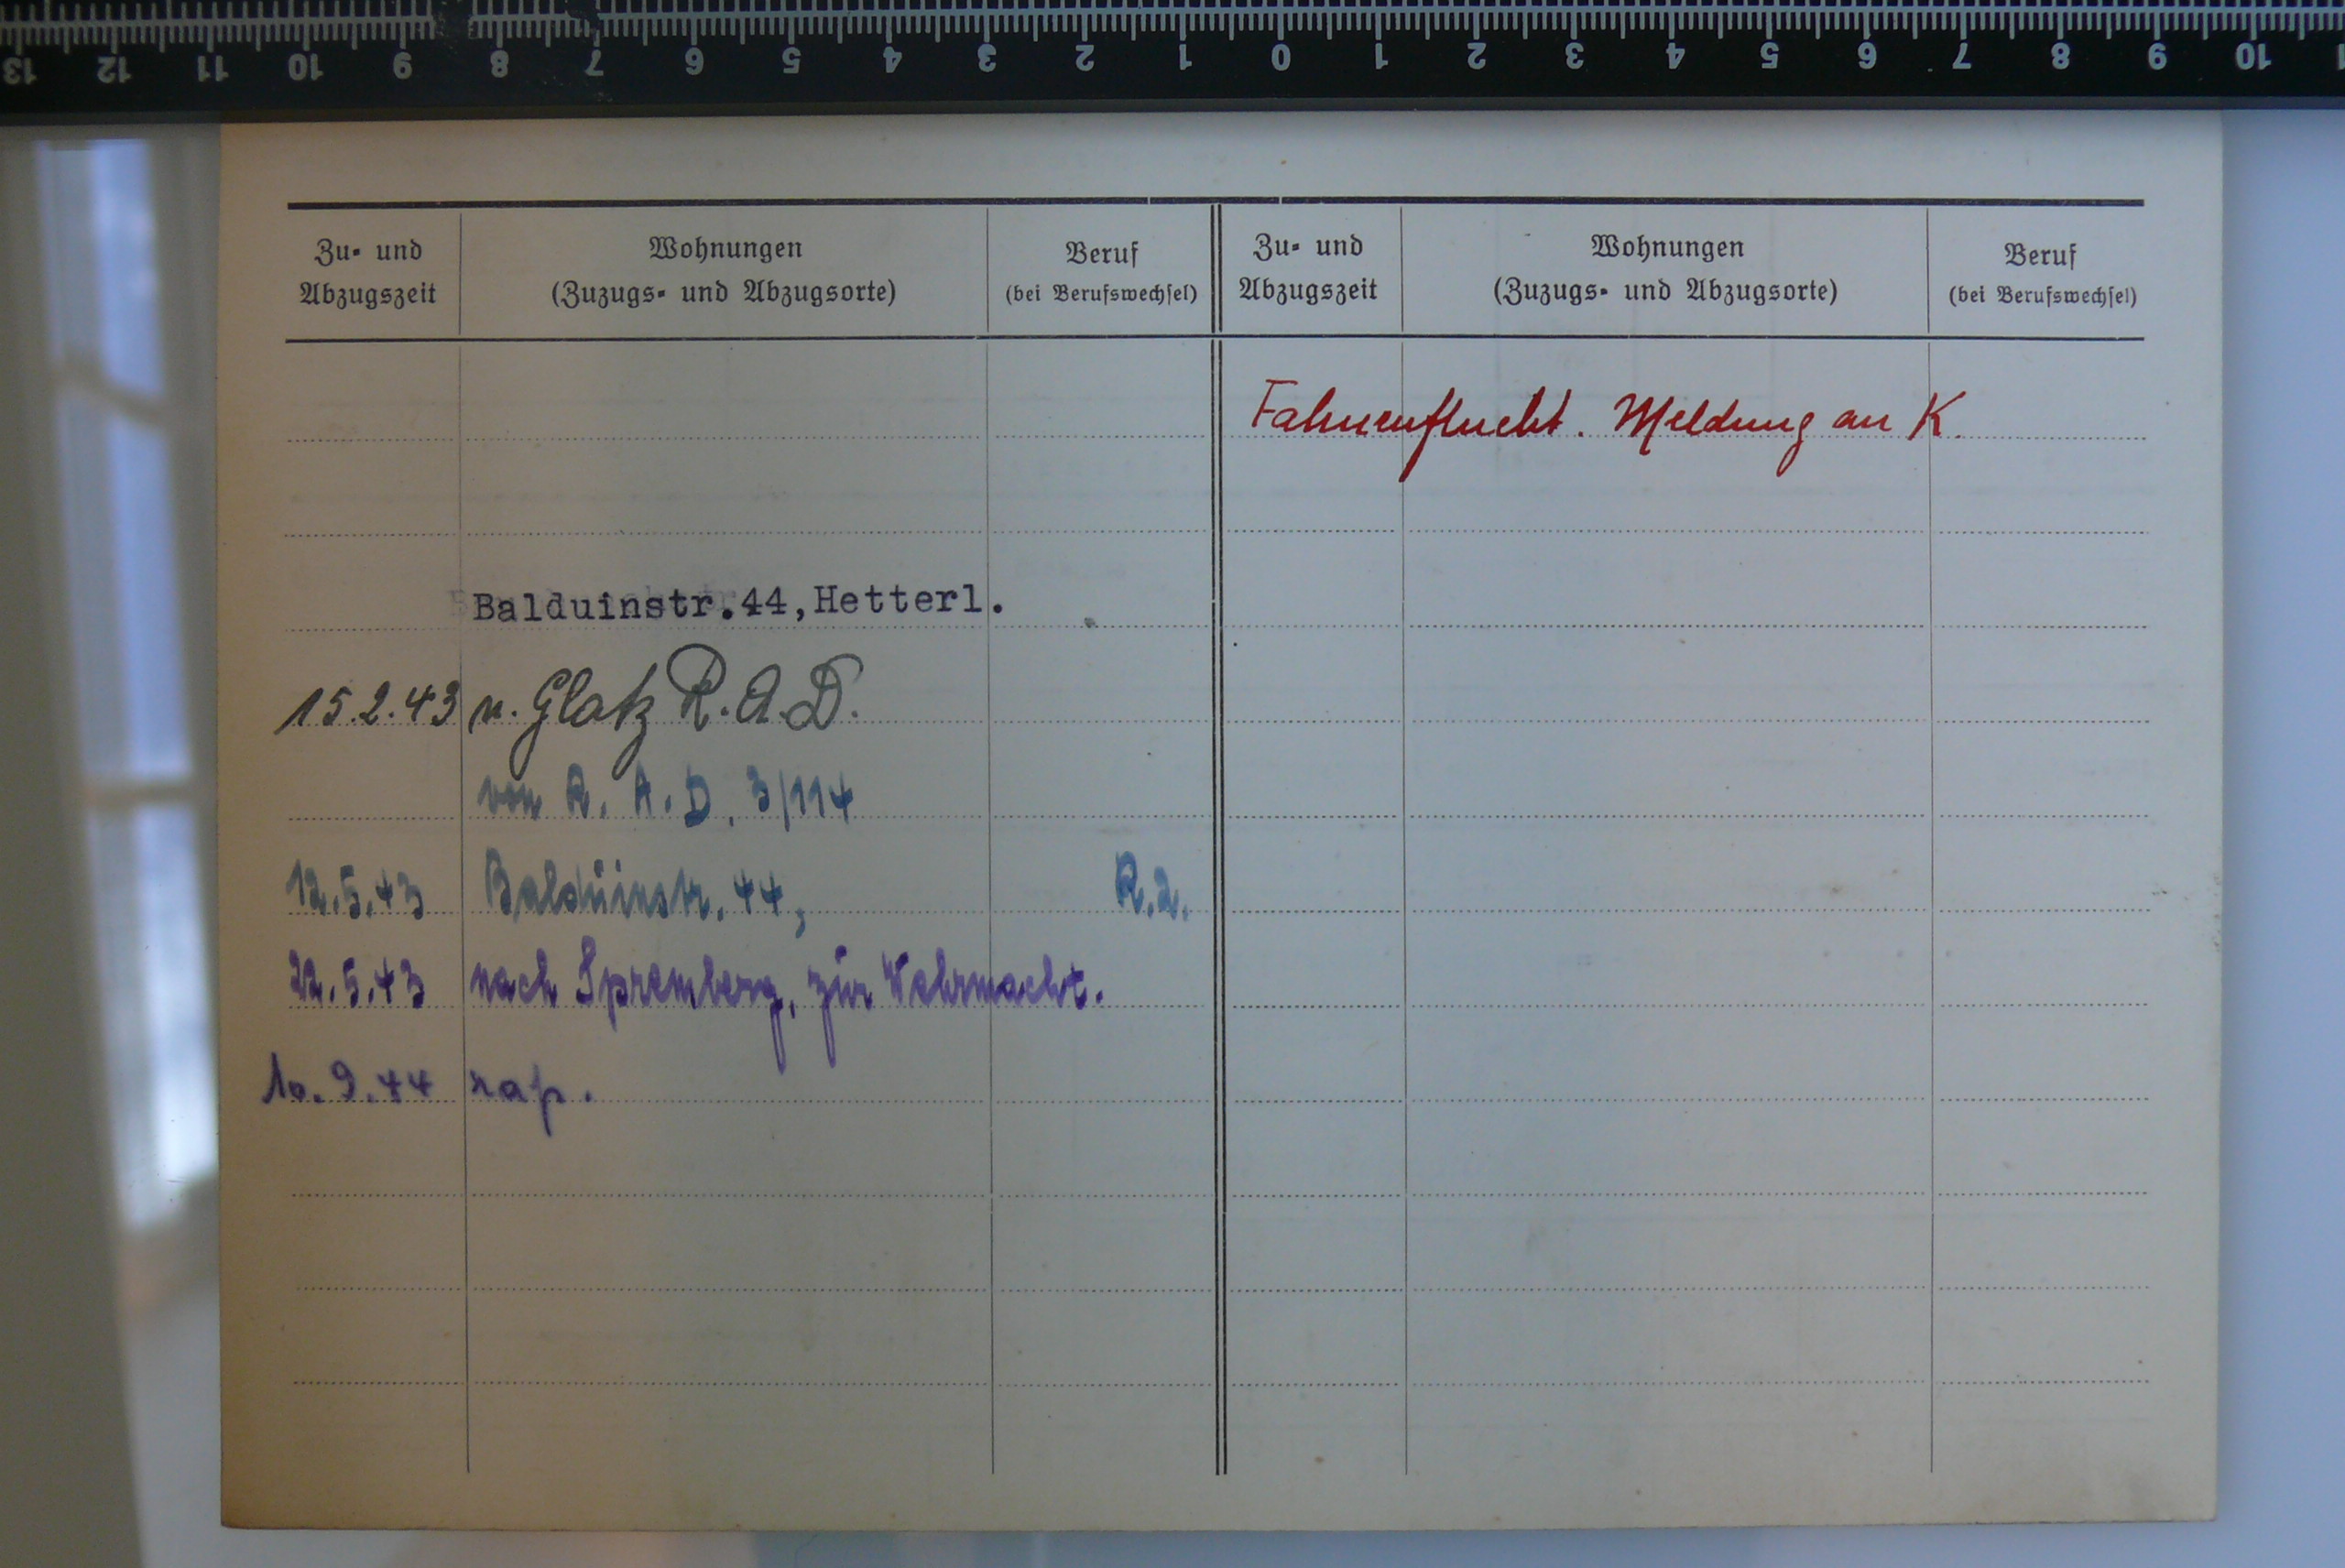 13 12 11 10 9 8 7 6 5 4 3 2 1 0 1 2 3 4 5 6 7 8 9 10
Zu- und Abzugszeit
Wohnungen
(Zuzugs- und Abzugsorte)
Beruf
(bei Berufswechsel)
Zu- und Abzugszeit
Wohnungen
(Zuzugs- und Abzugsorte)
Beruf
(bei Berufswechsel)
Balduinstr.44,Hetterl.
15.2.43 n. Glatz R.A.D.
von R.A.D. 3/114
12.5.43 Balduinstr. 44, R.2.
22.5.43 nach Spremberg, zur Wehrmacht.
10.9.44 rap.
Fahnenflucht. Meldung an K.